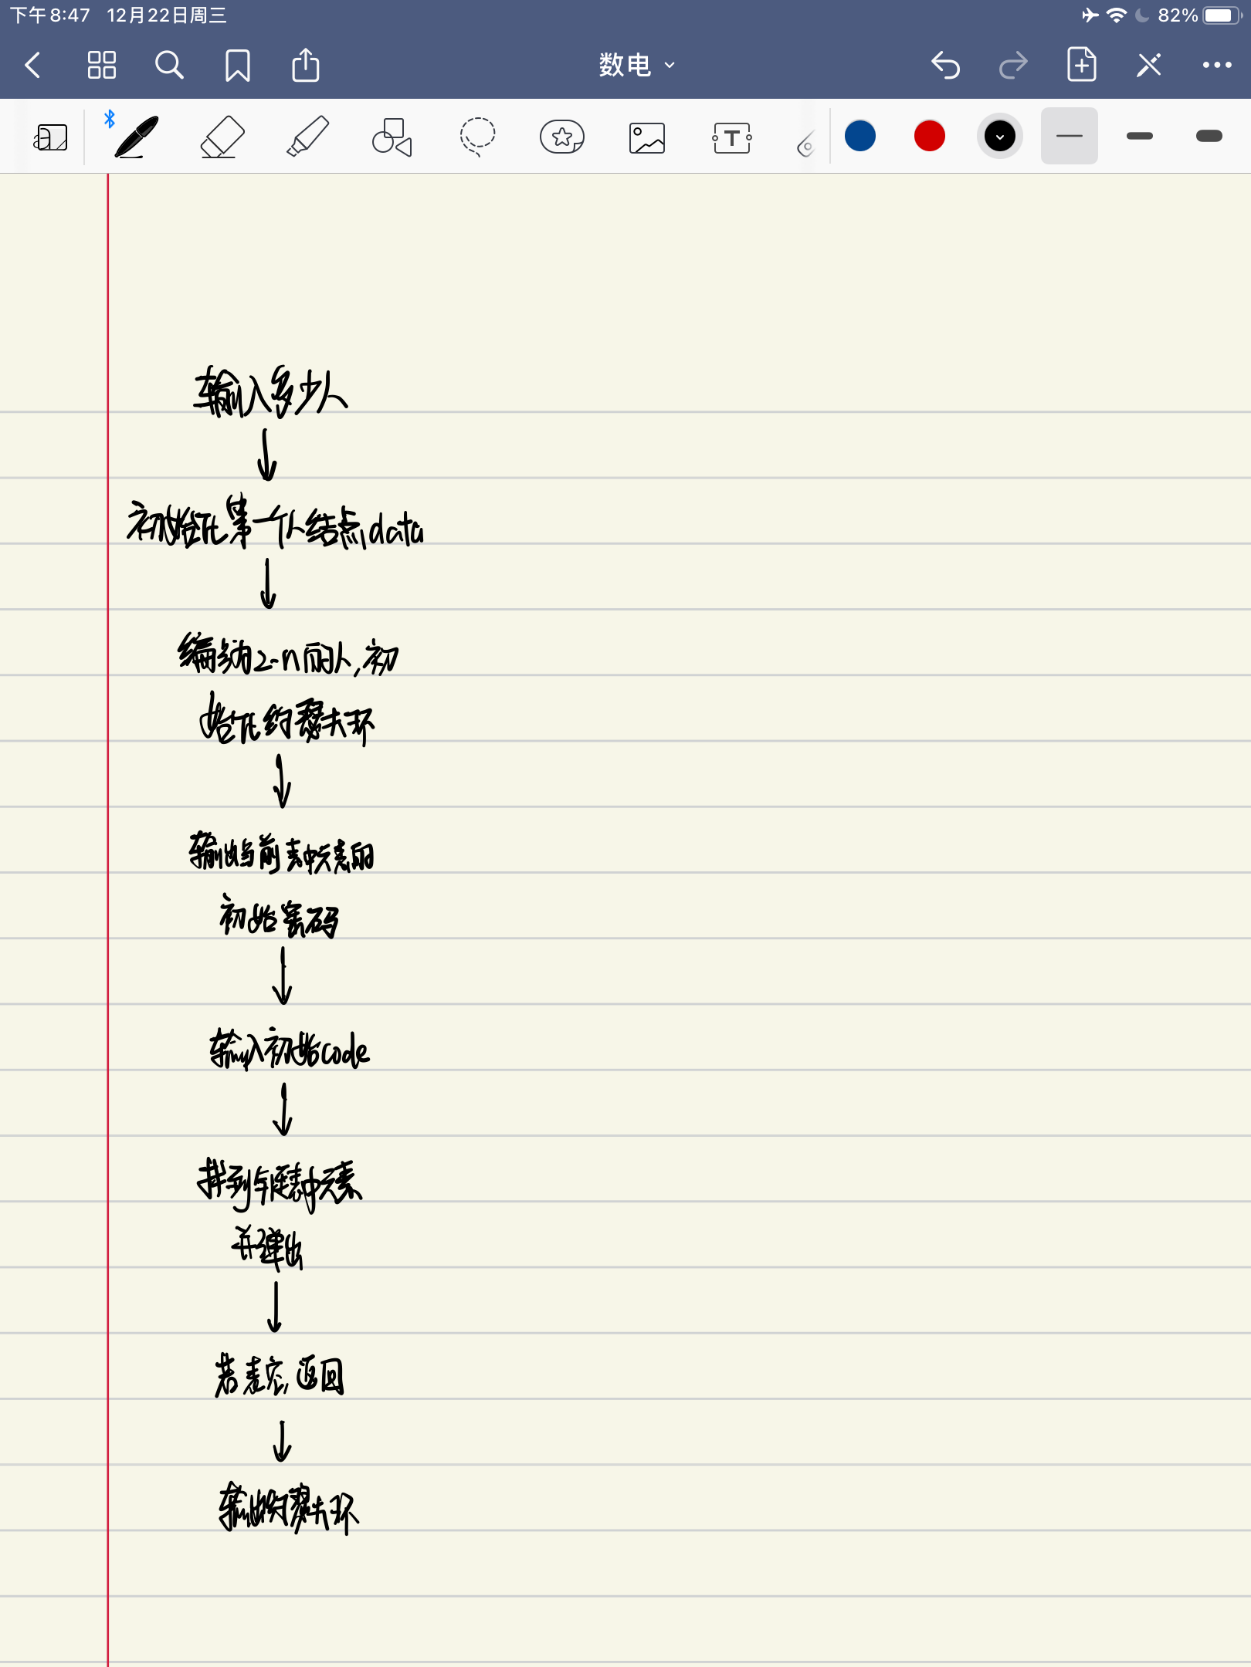 下午8:47 12月22日周三
82%
数电
输入多少人
初始化第一个人结点data
编号为2-n的人,初
始化约瑟夫环
输出当前表中元素的
初始密码
输入初始code
找到链表中元素
并弹出
若表空,返回
输出约瑟夫环